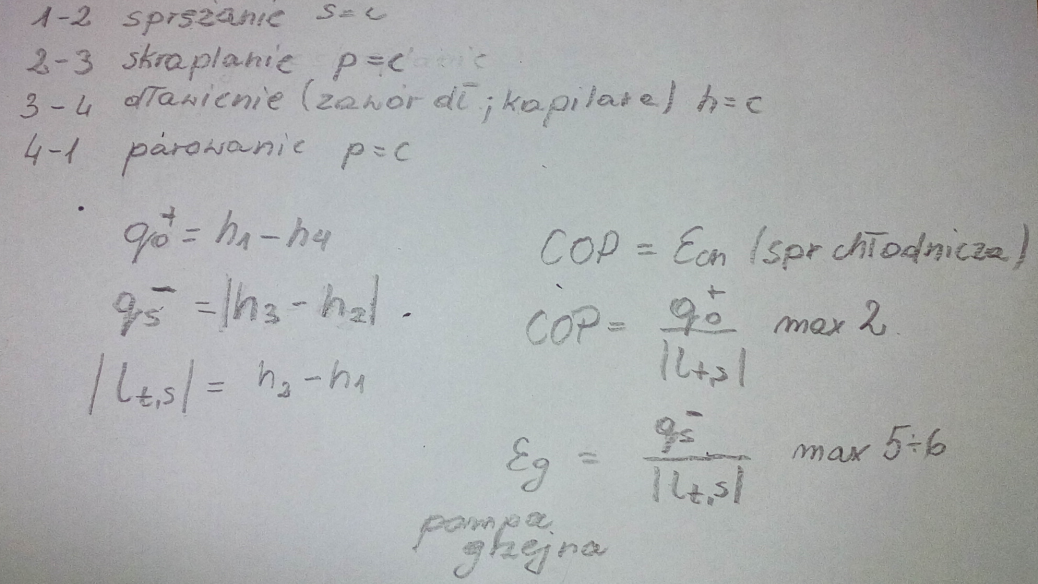 1-2 sprszanie s=c
2-3 skraplanie p=c
3-4 dławienie (zawór dł; kapilara) h=c
4-1 parowanie p=c
q₀⁺ = h₁ - h₄
qs⁻ = |h₃ - h₂|
|lt,s| = h₂ - h₁
COP = Ech (spr chłodnicza)
COP = q₀⁺ / |lt,s| max 2
Eg = qs⁻ / |lt,s| max 5÷6
pompa
grzejna